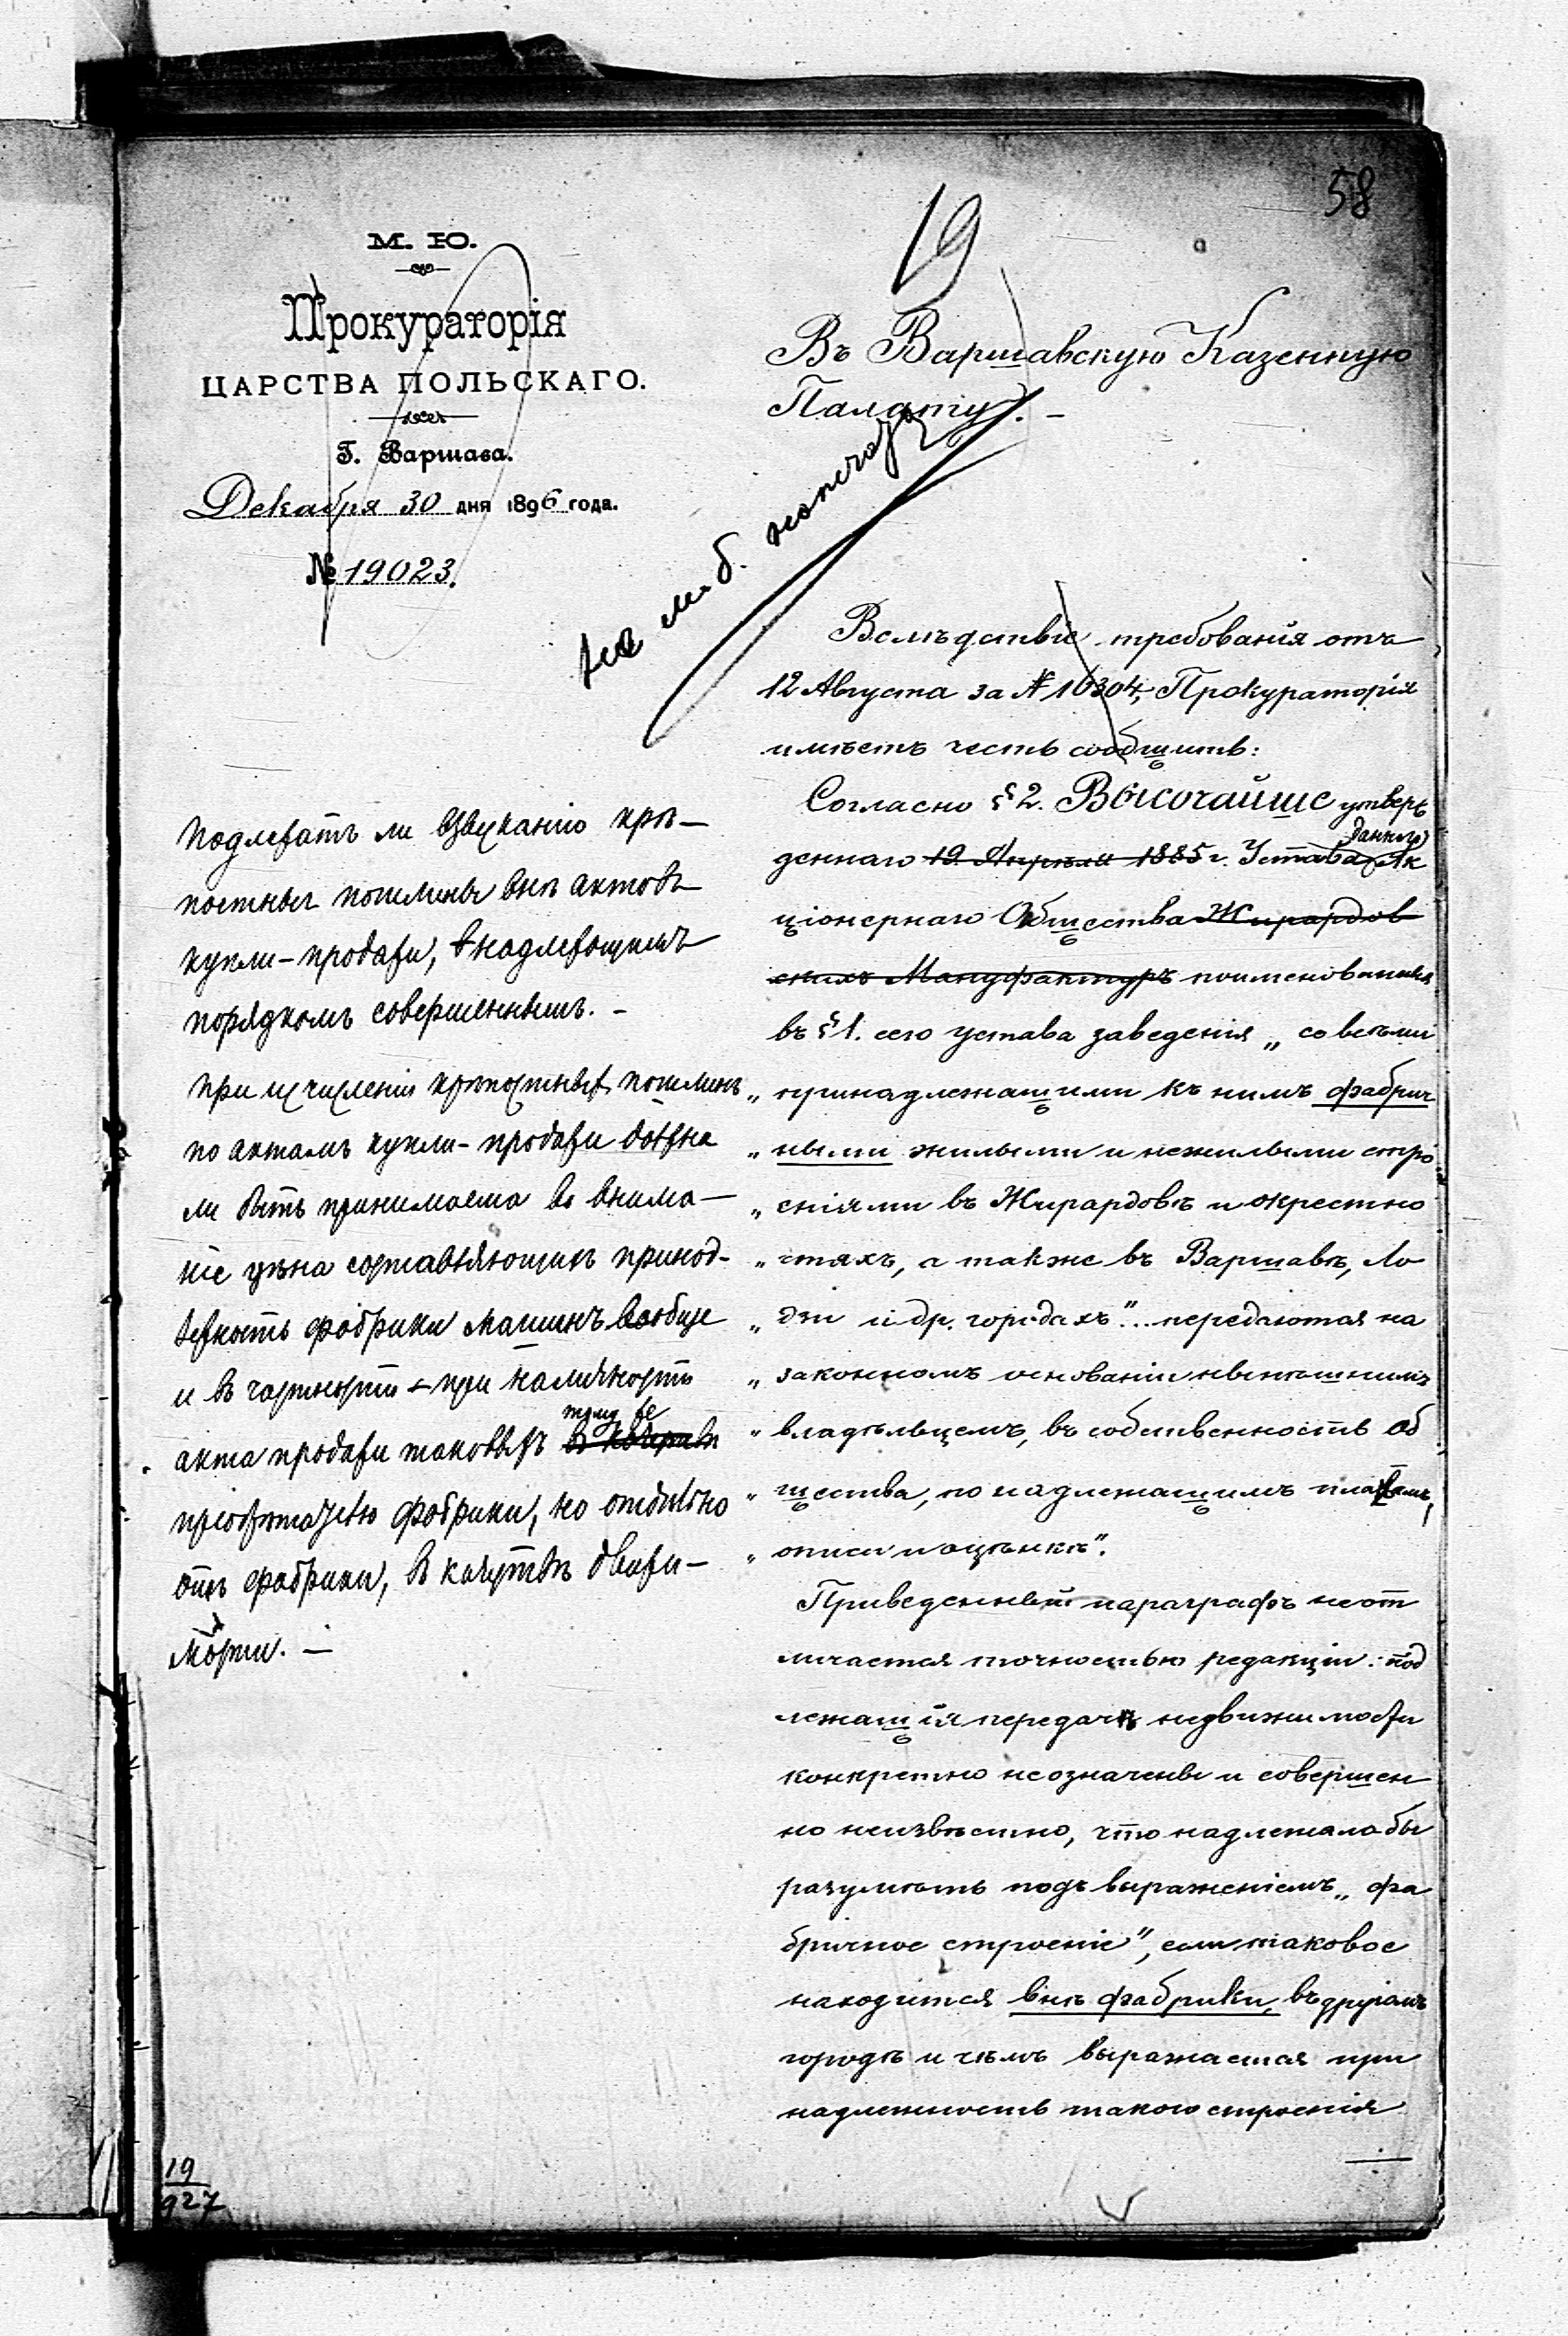 58
19
М. Ю.
Прокураторія
ЦАРСТВА ПОЛЬСКАГО.
Г. Варшава.
Декабря 30 дня 1896 года.
№ 19023.
Въ Варшавскую Казенную
Палату. –
на м. б.
Вслѣдствіе требованія отъ
12 Августа за № 10304, Прокураторія
имѣетъ честь сообщить:
Согласно § 2. Высочайше утверж
даннаго
деннаго 19 Апрѣля 1885 г. Устава Ак
ціонернаго Общества Жирардов
скихъ Мануфактуръ поименованныя
въ § 1. сего устава заведенія „ со всѣми
„ принадлежащими къ нимъ фабрич
„ ными жилыми и нежилыми стро
„ еніями въ Жирардовѣ и окрестно
„ стяхъ, а также въ Варшавѣ, Ло
„ дзи и др. городахъ"... передаются на
„ законномъ основаніи нынѣшнимъ
„ владѣльцемъ, въ собственность Об
„ щества, по надлежащимъ планамъ,
„ описи и оцѣнкѣ".
Приведенный параграфъ не от
личается точностью редакціи: под
лежащія передачѣ недвижимости
конкретно не означены и совершен
но неизвѣстно, что надлежало бы
разумѣть подъ выраженіемъ „ фа
бричное строеніе", если таковое
находится внѣ фабрики, въ другомъ
городѣ и чѣмъ выражается при
надлежность такого строенія
Подлежатъ ли взысканію крѣ–
постныя пошлины внѣ актовъ
купли–продажи, в надлежащемъ
порядкомъ совершенныхъ. –
При исчисленіи крѣпостныхъ пошлинъ
по актамъ купли–продажи должна
ли быть принимаема во внима–
ніе цѣна составляющихъ принад–
лежность фабрики машинъ вообще
и въ частности – при наличности
тому же
акта продажи таковыхъ
пріобрѣтателю фабрики, но отдѣльно
отъ фабрики, в качествѣ движи–
мости. –
19
927